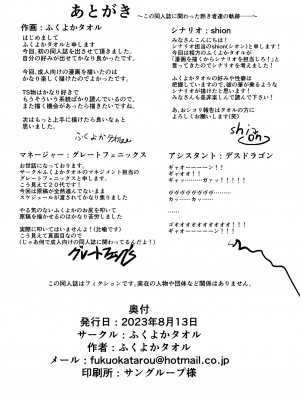 あとがき
～この同人誌に関わった熱き者達の軌跡――～
作画：ふくよかタオル
はじめまして
ふくよかタオルと申します
今回、初の同人誌を出させて頂きました。
自分の好みが出せてかなり良かったです。
今回、成人向けの漫画を描いたのは
かなり楽しく描けたのでよかったです。
TS物はかなり好きで
もうそういう系統ばかり読んでいるので、
また描く機会があったら描きたいですね。
次はもっと上手に描けたら良いなぁと
思いました。
ふくよかタオル
シナリオ：shion
みなさんこんにちは！
シナリオ担当のshion(シオン)と申します！
今回は相方のふくよかタオルが
「漫画を描くからシナリオ担当しろ！」と
言ってきたのでシナリオを考えました！
ふくよかタオルの好みや性癖は
把握していますので、彼の筆が乗るような
シナリオが描けたと思います！
みなさんも是非楽しんで読んで下さい！
あ、おシコリ報告はタオルの方に
よろしくお願いします(笑)
shion
マネージャー：グレートフェニックス
お世話になっております。
サークルふくよかタオルのマネジメント担当の
グレートフェニックスと申します。
こう見えて20代です！
今回は原稿が全然進んでないまま
スケジュールが渡されてかなり焦りました
やる気のないふくよかのお尻を叩いて
原稿を描かせるのはかなり苦労しました
実際に叩いてはいませんよ！(比喩です)
こう見えて真面目なので
(じゃあ何で成人向けの同人誌に関わってるんだよ！)
アシスタント：デスドラゴン
ギャオーーーーーン！！
ギャオオ！！
ギャッ………ガァッ！！！！！
ヴヴヴヴヴヴヴヴ………
カッ……カッ……
……
ゴオオオオオオオオオオオオ！！
ギャオーーーーーン！！！
この同人誌はフィクションです。実在の人物や団体など関係はありません。
奥付
発行日：2023年8月13日
サークル：ふくよかタオル
作者：ふくよかタオル
メール：fukuokatarou@hotmail.co.jp
印刷所：サングループ様